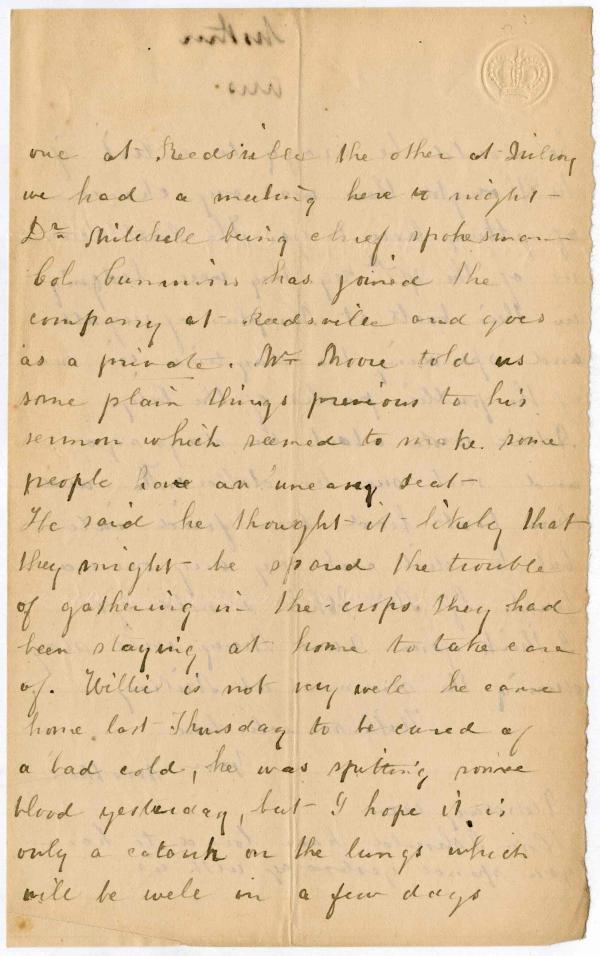 one at Reedsville the other at Milroy
we had a meeting here to night -
Dr Mitchell being chief spokesman -
Col Cummins has joined the
company at Reedsville and goes
as a private. Mr Moore told us
some plain things previous to his
sermon which seemed to make some
people have an uneasy seat -
He said he thought it likely that
they might be spared the trouble
of gathering in the crops they had
been staying at home to take care
of. Willie is not very well he came
home last Thursday to be cured of
a bad cold, he was spitting some
blood yesterday, but I hope it is
only a on the lungs which
will be well in a few days